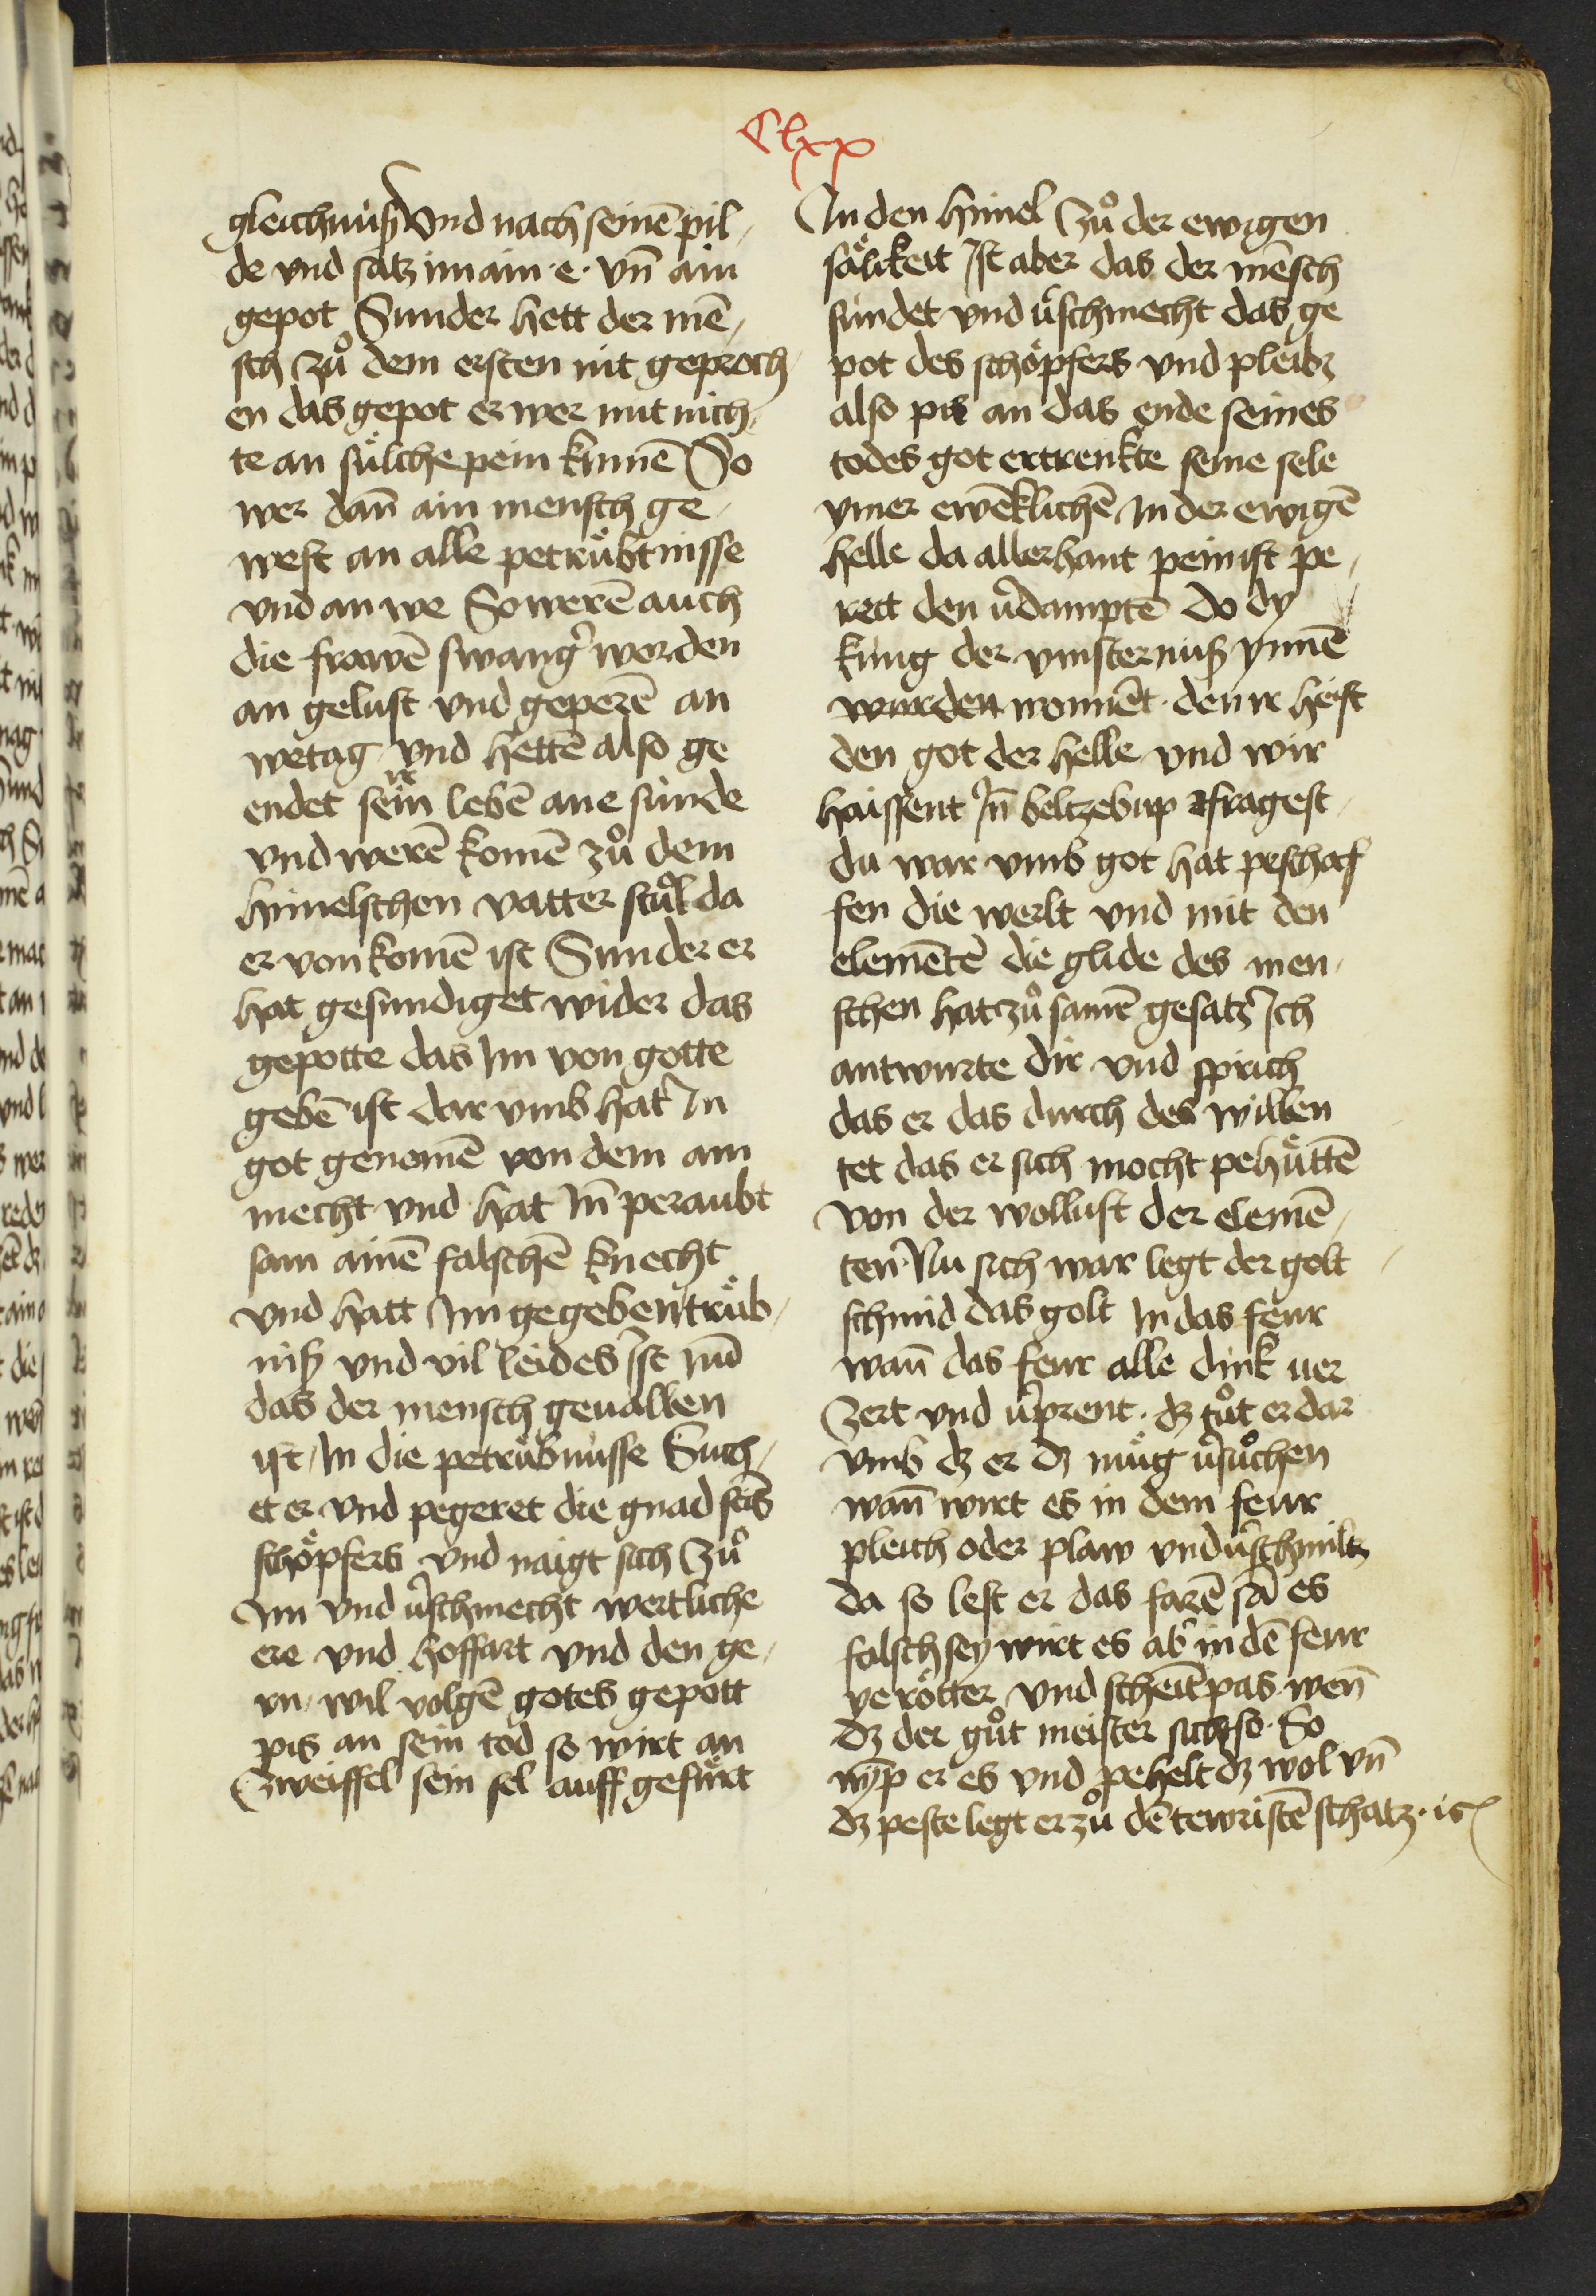 Clxx
gleichnuß Vnd nach seinē pil
de vnd satz im ain · e · vn̄ ain
gepot Sunder hett der mē
sch zů dem ersten nit geproch
en das gepot er wer mit nich
te an sülche pein kumē So
wer dan̄ ain mensch ge
west an alle petrübtnisse
vnd an we So werē auch
die frawē swang̉ worden
an gelust vnd geperē an
wetag vnd hettē also ge
endet sein ir lebē ane sünde
vnd werē komē zů dem
himelschen vatter stůl da
er von komē ist Sunder er
hat gesundiget wider das
gepotte das Im von gotte
gebē ist dar vmb hat In
got genomē von dem am
mecht vnd hat In̄ peraubt
sam ainē falschē knecht
vnd hatt Im gegeben trüb
niß vnd vil leides Ist nū
das der mensch geuallen
ist In die petrübnusse Such
et er vnd pegeret die gnad seis
schöpfers vnd naigt sich Zů
Im vnd v̉schmecht wertliche
ere vnd hoffart vnd den ge
rn wil volgē gotes gepott
pis an sein tod so wirt an
Zweiffel sein sel auff gefürt
In den himel Zů der ewigen
sälikeit Ist aber das der mēsch
sündet vnd v̉schmecht das ge
pot des schöpfers vnd pleibz
also pis an das ende seines
todes got ertrenkte seine sele
ymer ewēklichē In der ewigē
helle da allerhant pein ist pe
reit den v̉damptē Do dy
küng der vinsternuß ynnē
wurden wonnēt · den ir heist
den got der helle vnd wir
haissent In̄ beltzebup fragest
du war vmb got hat peschaf
fen die werlt vnd mit den
elemētē die glide des men
schen hat zů samē gesatz Ich
antwurte dir vnd sprich
das er das durch des willen
tet das er sich mocht pehüttē
von der wollust der elemē
ten · Nu sich war legt der golt
schmid das golt In das feur
wan̄ das feur alle dink uer
Zert vnd v̉prent · dz tůt er dar
vmb dz er dz müg v̉sůchen
wan̄ wirt es in dem feur
pleich oder plaw vnd v̉schmiltz
da so lest er das farē sā es
falsch sey wirt es ab̉ in dē feur
ye rötter vnd scheīt pas wen̄
dz der gůt meister sicht so · So
nȳp er es vnd pehelt dz wol vn̄
dz peste legt er zů dē tewristē schatz · ic